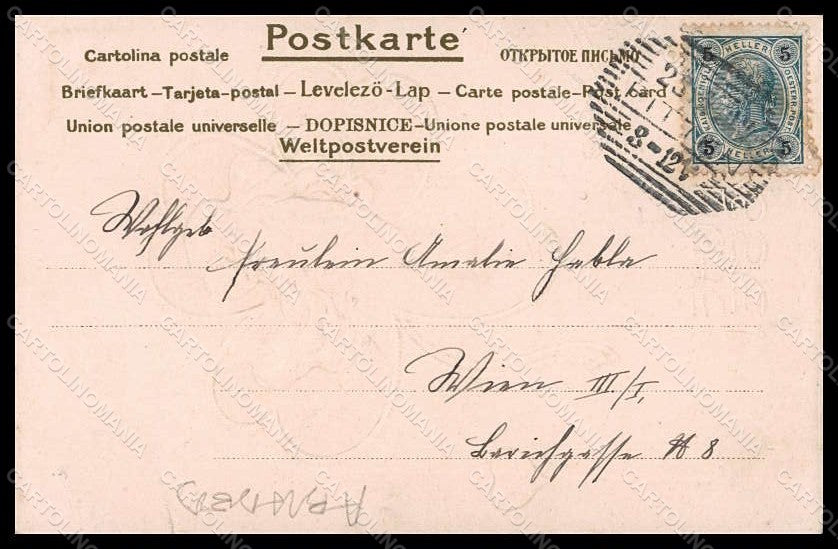 Postkarte
Cartolina postale ОТКРЫТОЕ ПИСЬМО
Briefkaart – Tarjeta-postal – Levelező-Lap – Carte postale – Post card
Union postale universelle – DOPISNICE – Unione postale universale
Weltpostverein
5 HELLER 5
5 HELLER 5
8-12V
Wohlgeb
Freulein Amalie Habla
Wien III/I,
Barichgasse № 8
CARTOLINOMANIA